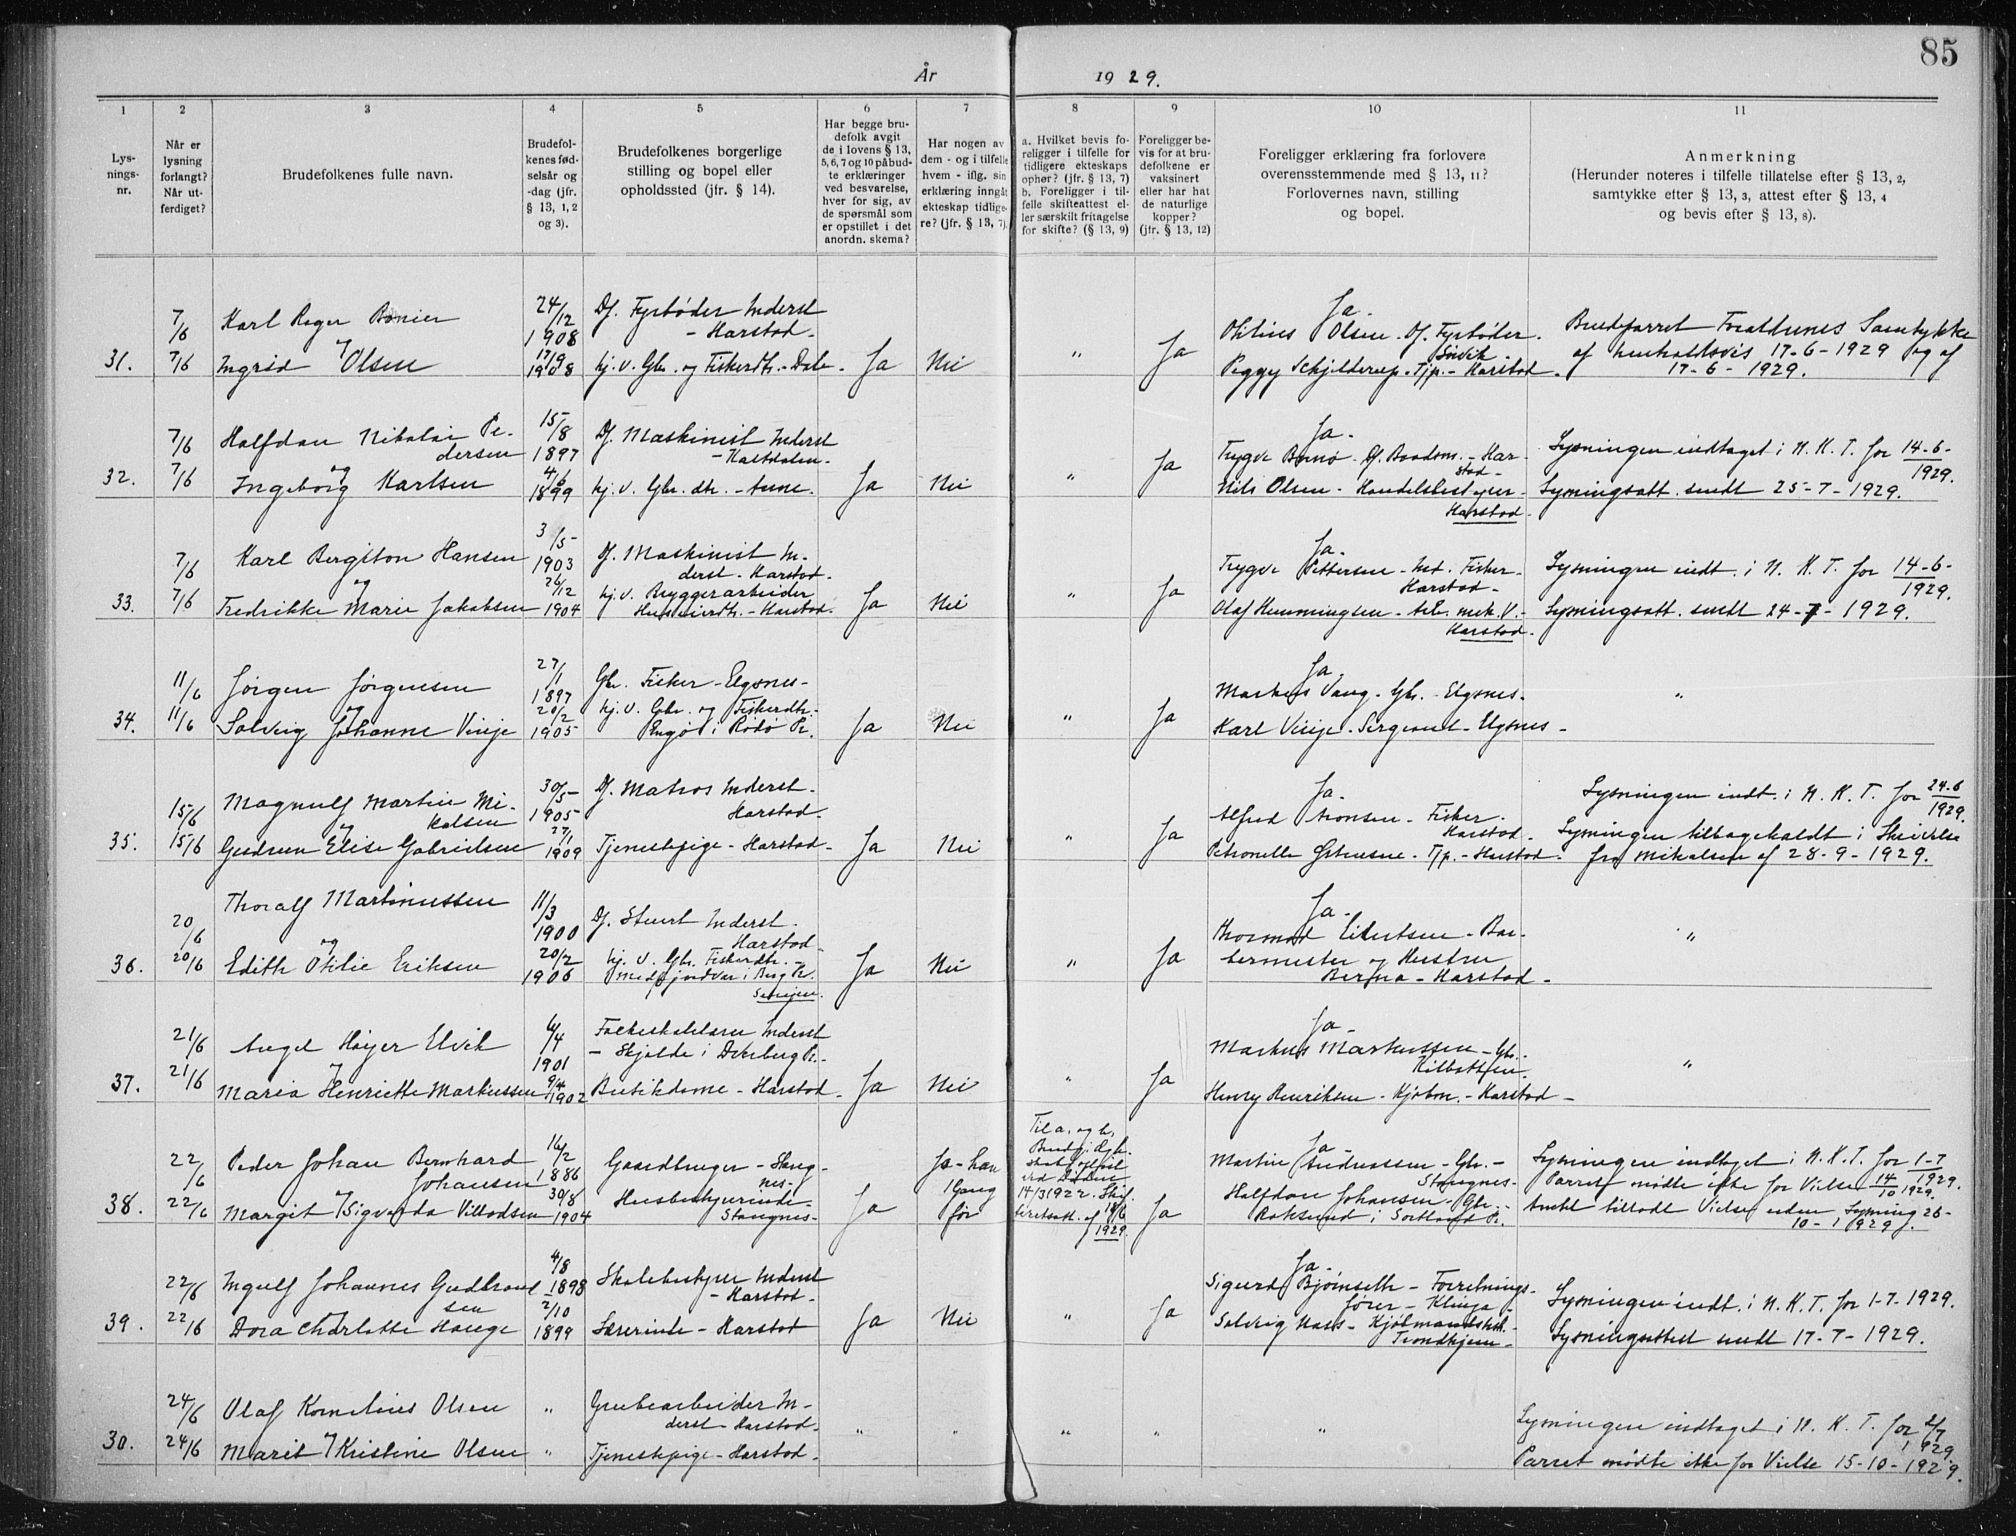 85
År 1929.
1
2
3
4
5
6
7
8
9
10
11
Lys-
nings-
nr.
Når er
lysning
forlangt?
Når ut-
ferdiget?
Brudefolkenes fulle navn.
Brudefol-
kenes fød-
selsår og
-dag (jfr.
§ 13, 1, 2
og 3).
Brudefolkenes borgerlige
stilling og bopel eller
opholdssted (jfr. § 14).
Har begge bru-
defolk avgit
de i lovens § 13,
5, 6, 7 og 10 påbud-
te erklæringer
ved besvarelse,
hver for sig, av
de spørsmål som
er opstillet i det
anordn. skema?
Har nogen av
dem - og i tilfelle
hvem - iflg. sin
erklæring inngåt
ekteskap tidlige-
re? (jfr. § 13, 7).
a. Hvilket bevis fo-
religger i tilfelle for
tidligere ekteskaps
ophør? (jfr. § 13, 7)
b. Foreligger i til-
felle skifteattest el-
ler særskilt fritagelse
for skifte? (§ 13, 9)
Foreligger be-
vis for at bru-
defolkene er
vaksinert
eller har hat
de naturlige
kopper?
(jfr. § 13, 12)
Foreligger erklæring fra forlovere
overensstemmende med § 13, 11?
Forlovernes navn, stilling
og bopel.
Anmerkning
(Herunder noteres i tilfelle tillatelse efter § 13, 2,
samtykke efter § 13, 3, attest efter § 13, 4
og bevis efter § 13, 8).
31.
7/6
7/6
Karl Roger
Ingrid Olsen
24/12
1908
17/9
1908
Df. Fyrbøder Inderst
- Harstad -
hj. v. Gbr. og Fiskerdtr. - Dale -
Ja
Nei
"
Ja
Ja -
Olsen - Df. Fyrbøder -
Peggy Schjelderup - Tjp. - Harstad -
Samtykke
af 17-6-1929 og af
17-6-1929.
32.
7/6
7/6
Halfdan Nikolai Pe-
dersen
og
Ingeborg Karlsen
15/8
1897
4/6
1899
Df. Maskinist Inderst
hj. v. Gbr. dtr. -
Ja
Nei
"
Ja
Ja -
Trygve - Df. - Har-
stad -
Nils Olsen - Handelsbestyrer -
Harstad -
Lysningen indtaget i N. K. T. for 14-6-
1929.
Lysningsatt. sendt 25-7-1929.
33.
7/6
7/6
Karl Bergiton Hansen
og
Fredrikke Marie Jakobsen
3/5
1903
26/12
1904
Df. Maskinist In-
derst - Harstad -
hj. v. Bryggearbeider
Huseierdtr. - Harstad -
Ja
Nei
"
Ja
Ja -
Trygve Pettersen - Ind. Fisker -
Harstad -
Olaf Hemmingsen - Arb. mek. V. -
Harstad -
Lysningen indt. i N. K. T. for 14-6-
1929.
Lysningsatt. sendt 24-7-1929.
34.
11/6
11/6
Jørgen Jørgensen
og
Solveig Johanne Vinje
27/1
1897
20/2
1905
Gbr. Fisker - Elgsnes -
hj. v. Gbr. og Fiskerdtr. -
i Rødø Pr.
Ja
Nei
"
Ja
Ja -
Markus Vang - Gbr. - Elgsnes -
Karl Vinje - Sergeant - Elgsnes -
"
35.
15/6
15/6
Magnulf Martin Mi-
kalsen
Gudrun Elise Gabrielsen
30/5
1905
27/1
1909
Df. Matros Inderst -
Harstad -
Tjenestepige - Harstad -
Ja
Nei
"
Ja
Ja -
Alfred Aronsen - Fisker -
Harstad -
Petronelle - Tjp. - Harstad -
Lysningen indt. i N. K. T. for 24-6
1929.
Lysningen tilbagekaldt i Skrivelse
fra Mikalsen af 28-9-1929.
36.
20/6
20/6
Thoralf Martinussen
og
Edith Otilie Eriksen
11/3
1900
20/2
1906
Df. Stuert Inderst -
Harstad -
hj. v. Gbr. Fiskerdtr. -
Medfjordvær i Berg Pr.
Senjen.
Ja
Nei
"
Ja
Ja -
Thormod Eilertsen - Bar-
bermester og Hustru
- Harstad -
"
37.
21/6
21/6
Angel Høyer Elvik
Maria Henriette Markussen
6/4
1901
9/4
1902
Folkeskolelærer Inderst
- Skjolde i Dverberg Pr. -
Butikdame - Harstad -
Ja
Nei
"
Ja
Ja -
Markus Markussen - Gbr. -
Kilbotten.
Henry Henriksen - Kjøbm. - Harstad -
"
38.
22/6
22/6
Peder Johan Bernhard
Johansen
Margit Sigvarda Villadsen
16/2
1886
30/8
1904
Gaardbruger - Stang-
nes -
Husbestyrerinde -
Stangnes -
Ja
Ja - han
1 Gang
før
Til a. og b.
14/3 1922. Skif-
teretsatt. af 18/6
1929.
Ja
Ja -
Martin Andreassen - Gbr. -
Stangnes -
Halfdan Johansen - Gbr. -
i Sortland Pr.
Lysningen indtaget i N. K. T. for 1-7
1929.
Parret mødte ikke for Vielse 14/10 1929.
tillodt Vielse uden Lysning 26-
10-1929.
39.
22/6
22/6
Ingulf Johannes Gudbrand
sen
Dora Charlotte Hauge
4/8
1898
2/10
1899
Skolebestyrer Inderst
- Harstad -
Lærerinde - Harstad
Ja
Nei
"
Ja
Ja -
Sigurd Bjørnseth - Forretnings-
fører - Klinga -
Solveig - Kjøbmandsdtr. -
Trondhjem -
Lysningen indt. i N. K. T. for 1-7-1929.
Lysningsattest sendt 17-7-1929.
30.
24/6
24/6
Olaf Kornelius Olsen
Marit Kristine Olsen
"
"
Grubearbeider In-
derst - Harstad -
Tjenestepige - Harstad -
"
"
"
"
"
Lysningen indtaget i N. K. T. for 2/7
1929.
Parret mødte ikke for Vielse 15-10-1929.